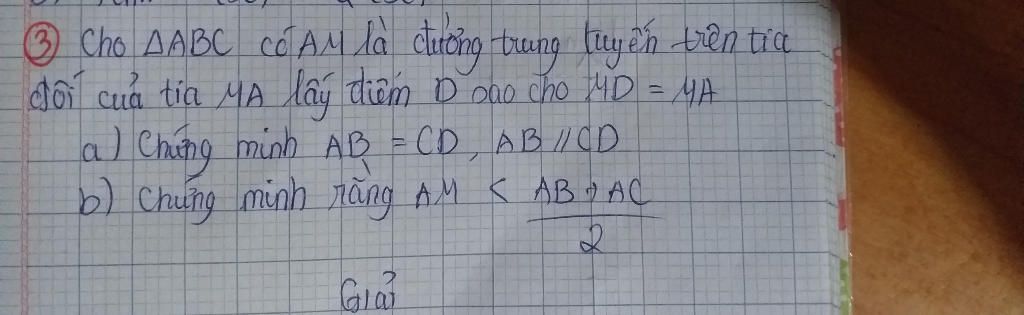 ③ Cho ΔABC có AM là đường trung tuyến trên tia
đối của tia MA lấy điểm D sao cho MD = MA
a) Chứng minh AB = CD, AB // CD
b) Chứng minh rằng AM < \frac{AB + AC}{2}
Giải